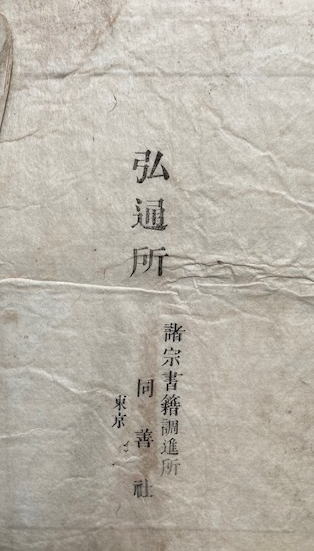 弘通所
諸宗書籍調進所
同善社
東京